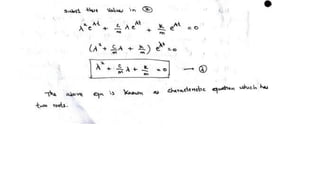 subst these values in ②
λ²e^λt + c/m λe^λt + k/m e^λt = 0
(λ² + c/m λ + k/m) e^λt = 0
λ² + c/m λ + k/m = 0 → ④
The above eqn is known as characteristic equation which has
two roots.